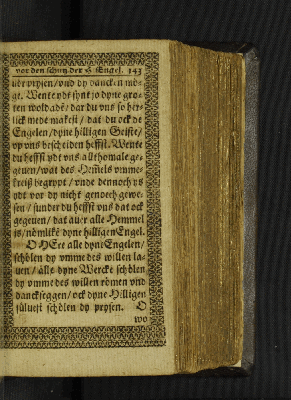 vor den schutz der H. Engel. 143
uer prysen / vnd dy dancken mö-
ge. Wente ydt synt jo dyne gro-
ten woldadē / dar du vns so her-
lick mede makest / dat du ock de
Engelen / dyne hilligen Geiste /
vp vns bescheiden heffst. Wente
du heffst ydt vns allthomale ge-
geuen / wat des Hemels vmme-
kreiß begrypt / vnde dennoch ys
ydt vor dy nicht genoech gewe-
sen / sunder du heffst vns dat ock
gegeuen / dat auer alle Hemmel
is / nömlikē dyne hilligen Engel.
O HEre alle dyne Engelen /
schölen dy vmme des willen la-
uen / alle dyne Wercke schölen
dy vmme des willen römen vnd
danckseggen / ock dyne Hilligen
süluest schölen dy prysen. O
wo